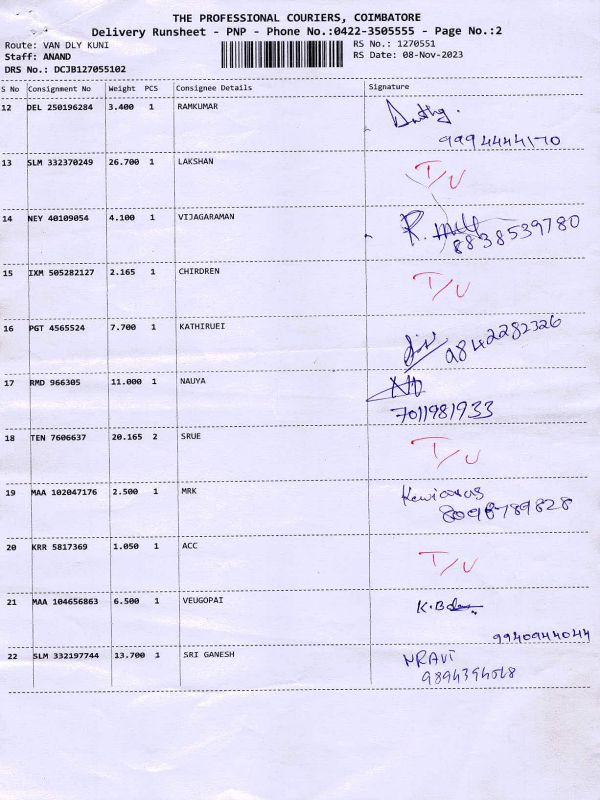 THE PROFESSIONAL COURIERS, COIMBATORE
Delivery Runsheet - PNP - Phone No.:0422-3505555 - Page No.:2
Route: VAN DLY KUNI RS No.: 1270551
Staff: ANAND RS Date: 08-Nov-2023
DRS No.: DCJB127055102
S No Consignment No Weight PCS Consignee Details Signature
12 DEL 250196284 3.400 1 RAMKUMAR
9994444170
13 SLM 332370249 26.700 1 LAKSHAN T/U
14 NEY 40109054 4.100 1 VIJAGARAMAN R.
8838539780
15 IXM 505282127 2.165 1 CHIRDREN T/U
16 PGT 4565524 7.700 1 KATHIRUEI
9842282326
17 RMD 966305 11.000 1 NAUYA
7011981933
18 TEN 7606637 20.165 2 SRUE T/U
19 MAA 102047176 2.500 1 MRK
8098789828
20 KRR 5817369 1.050 1 ACC T/U
21 MAA 104656863 6.500 1 VEUGOPAI
9940944044
22 SLM 332197744 13.700 1 SRI GANESH NRAVI